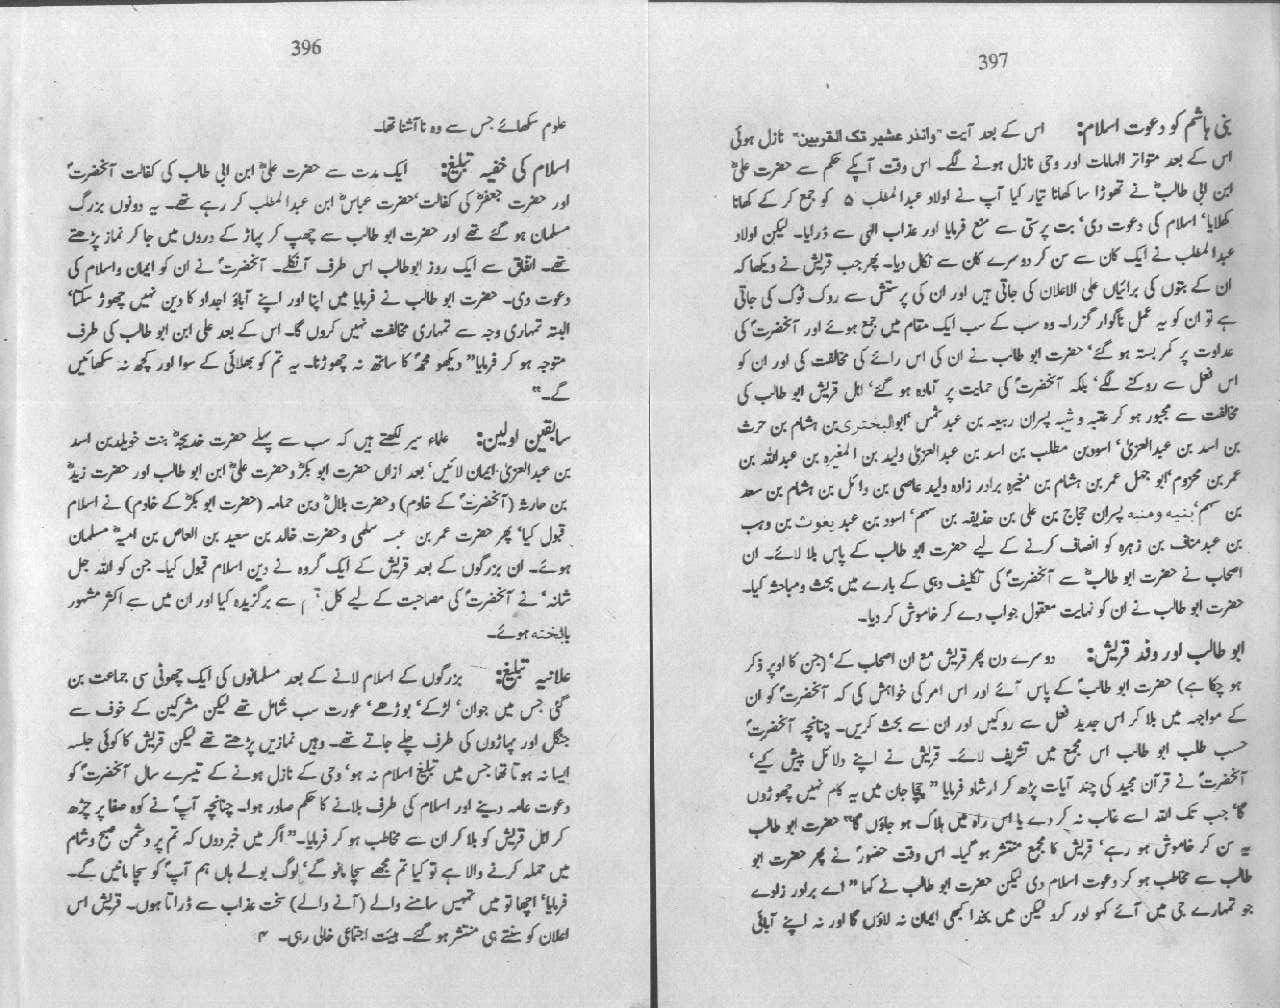 396
علوم سکھائے جس سے وہ نا آشنا تھا۔
اسلام کی خفیہ تبلیغ: ایک مدت سے حضرت علیؓ ابن ابی طالب کی کفالت آنحضرتؐ
اور حضرت جعفرؓ کی کفالت' حضرت عباسؓ ابن عبدالمطلب کر رہے تھے۔ یہ دونوں بزرگ
مسلمان ہو گئے تھے اور حضرت ابو طالب سے چھپ کر پہاڑ کے دروں میں جا کر نماز پڑھتے
تھے۔ اتفاق سے ایک روز ابوطالب اس طرف آنکلے۔ آنحضرتؐ نے ان کو ایمان واسلام کی
دعوت دی۔ حضرت ابو طالب نے فرمایا میں اپنا اور اپنے آباؤ اجداد کا دین نہیں چھوڑ سکتا'
البتہ تمہاری وجہ سے تمہاری مخالفت نہیں کروں گا۔ اس کے بعد علی ابن ابو طالب کی طرف
متوجہ ہو کر فرمایا" دیکھو محمدؐ کا ساتھ نہ چھوڑنا۔ یہ تم کو بھلائی کے سوا اور کچھ نہ سکھائیں
گے۔"
سابقین اولین: علماء سیر لکھتے ہیں کہ سب سے پہلے حضرت خدیجہؓ بنت خویلد بن اسد
بن عبدالعزیٰ ایمان لائیں' بعد ازاں حضرت ابو بکرؓ و حضرت علیؓ ابن ابو طالب اور حضرت زیدؓ
بن حارثہ (آنحضرتؐ کے خادم) و حضرت بلالؓ بن حمامہ (حضرت ابو بکرؓ کے خادم) نے اسلام
قبول کیا' پھر حضرت عمر بن عبسہ سلمی و حضرت خالد بن سعید بن العاص بن امیہؓ مسلمان
ہوئے۔ ان بزرگوں کے بعد قریش کے ایک گروہ نے دین اسلام قبول کیا۔ جن کو اللہ جل
شانہ' نے آنحضرتؐ کی مصاحبت کے لیے کل سے برگزیدہ کیا اور ان میں سے اکثر مشہور
ہوئے۔
علانیہ تبلیغ: بزرگوں کے اسلام لانے کے بعد مسلمانوں کی ایک چھوٹی سی جماعت بن
گئی جس میں جوان' لڑکے' بوڑھے' عورت سب شامل تھے لیکن مشرکین کے خوف سے
جنگل اور پہاڑوں کی طرف چلے جاتے تھے۔ وہیں نمازیں پڑھتے تھے لیکن قریش کا کوئی جلسہ
ایسا نہ ہوتا تھا جس میں تبلیغ اسلام نہ ہو' وحی کے نازل ہونے کے تیسرے سال آنحضرتؐ کو
دعوت عامہ دینے اور اسلام کی طرف بلانے کا حکم صادر ہوا۔ چنانچہ آپؐ نے کوہ صفا پر چڑھ
کر اہل قریش کو بلا کر ان سے مخاطب ہو کر فرمایا۔" اگر میں خبر دوں کہ تم پر دشمن صبح و شام
میں حملہ کرنے والا ہے تو کیا تم مجھے سچا مانو گے' لوگ بولے ہاں ہم آپؐ کو سچا مانیں گے۔
فرمایا' اچھا تو میں تمہیں سامنے والے (آنے والے) سخت عذاب سے ڈراتا ہوں۔ قریش اس
اعلان کو سنتے ہی منتشر ہو گئے۔ ہیئت اجتماعی خالی رہی۔ ۴
397
بنی ہاشم کو دعوت اسلام: اس کے بعد آیت "وانذر عشیر تک القربین" نازل ہوئی
اس کے بعد متواتر الہامات اور وحی نازل ہونے لگے۔ اس وقت آپکے حکم سے حضرت علیؓ
ابن ابی طالبؓ نے تھوڑا سا کھانا تیار کیا آپ نے اولاد عبدالمطلب ۵ کو جمع کر کے کھانا
کھلایا' اسلام کی دعوت دی' بت پرستی سے منع فرمایا اور عذاب الٰہی سے ڈرایا۔ لیکن اولاد
عبدالمطلب نے ایک کان سے سن کر دوسرے کان سے نکال دیا۔ پھر جب قریش نے دیکھا کہ
ان کے بتوں کی برائیاں علی الاعلان کی جاتی ہیں اور ان کی پرستش سے روک ٹوک کی جاتی
ہے تو ان کو یہ عمل ناگوار گزرا۔ وہ سب کے سب ایک مقام میں جمع ہوئے اور آنحضرتؐ کی
عداوت پر کمر بستہ ہو گئے' حضرت ابو طالب نے ان کی اس رائے کی مخالفت کی اور ان کو
اس فعل سے روکنے لگے' بلکہ آنحضرتؐ کی حمایت پر آمادہ ہو گئے' اہل قریش ابو طالب کی
مخالفت سے مجبور ہو کر عتبہ و شیبہ پسران ربیعہ بن عبد شمس' ابوالبختری بن ہشام بن حرث
بن اسد بن عبدالعزیٰ' اسود بن مطلب بن اسد بن عبدالعزیٰ ولید بن المغیرہ بن عبداللہ بن
عمر بن مخزوم' ابو جہل عمر بن ہشام بن مغیرہ برادر زادہ ولید عاصی بن وائل بن ہشام بن سعد
بن سہم' بنیہ و منبہ پسران حجاج بن علی بن حذیفہ بن سہم' اسود بن عبد یغوث بن وہب
بن عبد مناف بن زہرہ کو انصاف کرنے کے لیے حضرت ابو طالب کے پاس بلا لائے۔ ان
اصحاب نے حضرت ابو طالبؓ سے آنحضرتؐ کی تکلیف دہی کے بارے میں بحث ومباحثہ کیا۔
حضرت ابو طالب نے ان کو نہایت معقول جواب دے کر خاموش کر دیا۔
ابو طالب اور وفد قریش: دوسرے دن پھر قریش مع ان اصحاب کے' (جن کا اوپر ذکر
ہو چکا ہے) حضرت ابو طالبؑ کے پاس آئے اور اس امر کی خواہش کی کہ آنحضرتؐ کو ان
کے مواجہہ میں بلا کر اس جدید فعل سے روکیں اور ان سے بحث کریں۔ چنانچہ آنحضرتؐ
حسب طلب ابو طالب اس مجمع میں تشریف لائے۔ قریش نے اپنے دلائل پیش کیے'
آنحضرتؐ نے قرآن مجید کی چند آیات پڑھ کر ارشاد فرمایا " چچا جان میں یہ کام نہیں چھوڑوں
گا' جب تک اللہ اسے غالب نہ کر دے یا اس راہ میں ہلاک ہو جاؤں گا" حضرت ابو طالب
یہ سن کر خاموش ہو رہے' قریش کا مجمع منتشر ہو گیا۔ اس وقت حضورؐ نے پھر حضرت ابو
طالب سے مخاطب ہو کر دعوت اسلام دی لیکن حضرت ابو طالب نے کہا " اے برادر زادے
جو تمہارے جی میں آئے کہو اور کرو لیکن میں بخدا کبھی ایمان نہ لاؤں گا اور نہ اپنے آبائی